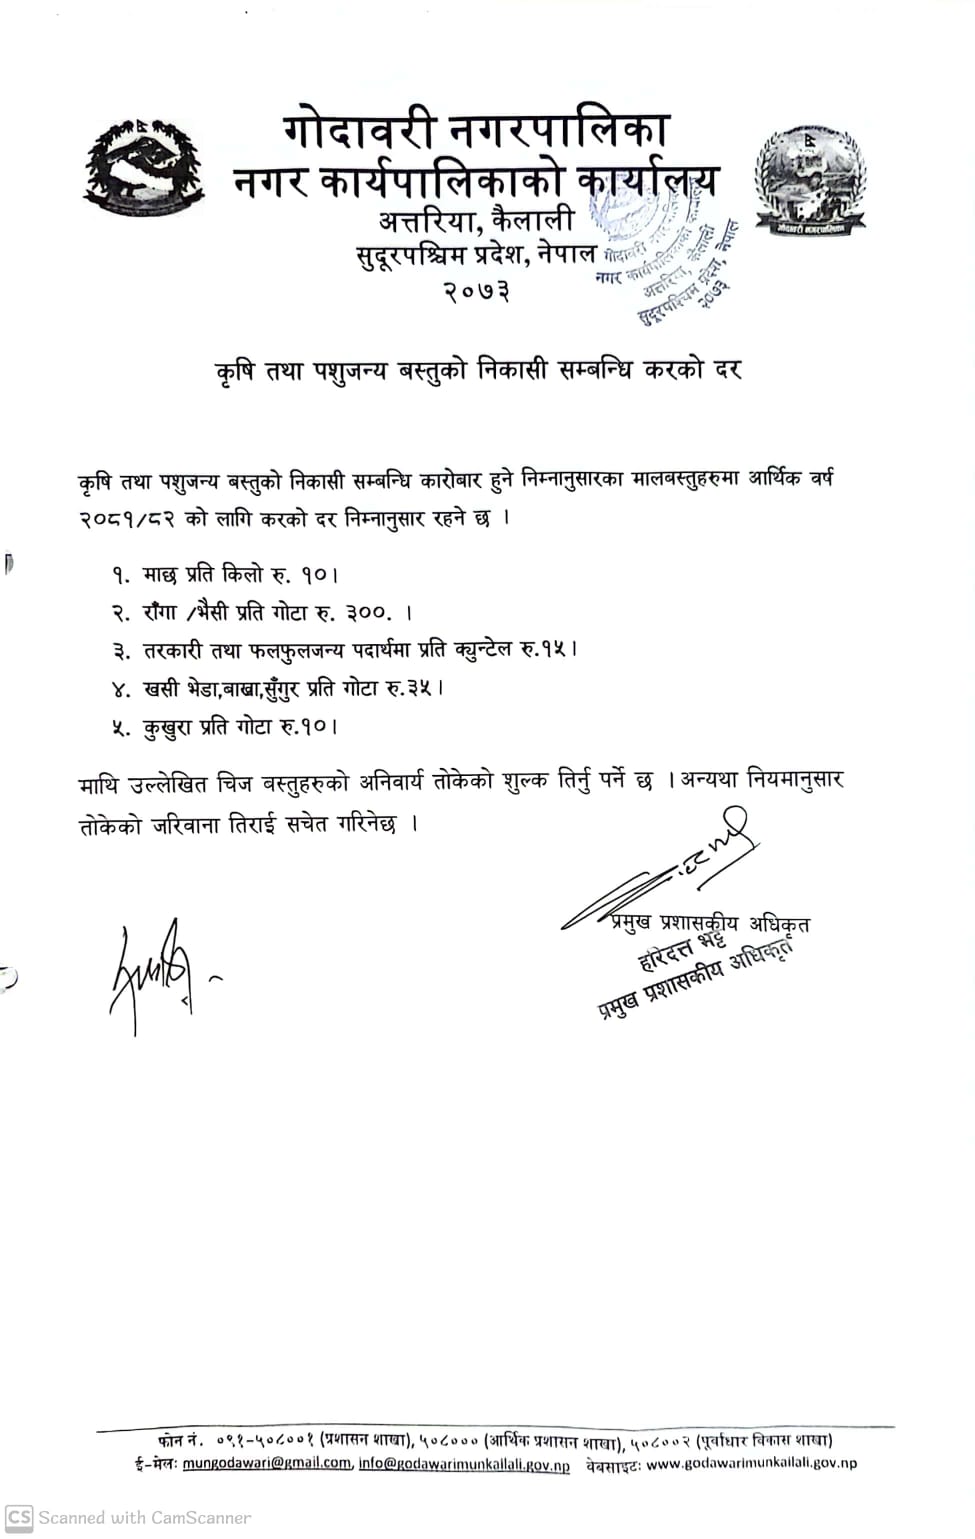 गोदावरी नगरपालिका
नगर कार्यपालिकाको कार्यालय
अत्तरिया, कैलाली
सुदूरपश्चिम प्रदेश, नेपाल
२०७३
गोदावरी नगरपालिका
नगर कार्यपालिकाको कार्यालय
अत्तरिया, कैलाली
सुदूरपश्चिम प्रदेश, नेपाल
२०७३
गोदावरी नगरपालिका
कृषि तथा पशुजन्य बस्तुको निकासी सम्बन्धि करको दर
कृषि तथा पशुजन्य बस्तुको निकासी सम्बन्धि कारोबार हुने निम्नानुसारका मालबस्तुहरुमा आर्थिक वर्ष
२०८१/८२ को लागि करको दर निम्नानुसार रहने छ ।
१. माछ प्रति किलो रु. १०।
२. राँगा /भैसी प्रति गोटा रु. ३००. ।
३. तरकारी तथा फलफुलजन्य पदार्थमा प्रति क्युन्टेल रु.१५।
४. खसी भेडा,बाख्रा,सुँगुर प्रति गोटा रु.३५।
५. कुखुरा प्रति गोटा रु.१०।
माथि उल्लेखित चिज वस्तुहरुको अनिवार्य तोकेको शुल्क तिर्नु पर्ने छ । अन्यथा नियमानुसार
तोकेको जरिवाना तिराई सचेत गरिनेछ ।
प्रमुख प्रशासकीय अधिकृत
हरिदत्त भट्ट
प्रमुख प्रशासकीय अधिकृत
फोन नं. ०९१-५०८००१ (प्रशासन शाखा), ५०८००० (आर्थिक प्रशासन शाखा), ५०८००२ (पूर्वाधार विकास शाखा)
ई-मेलः mungodawari@gmail.com, info@godawarimunkailali.gov.np वेबसाइटः www.godawarimunkailali.gov.np
CS Scanned with CamScanner